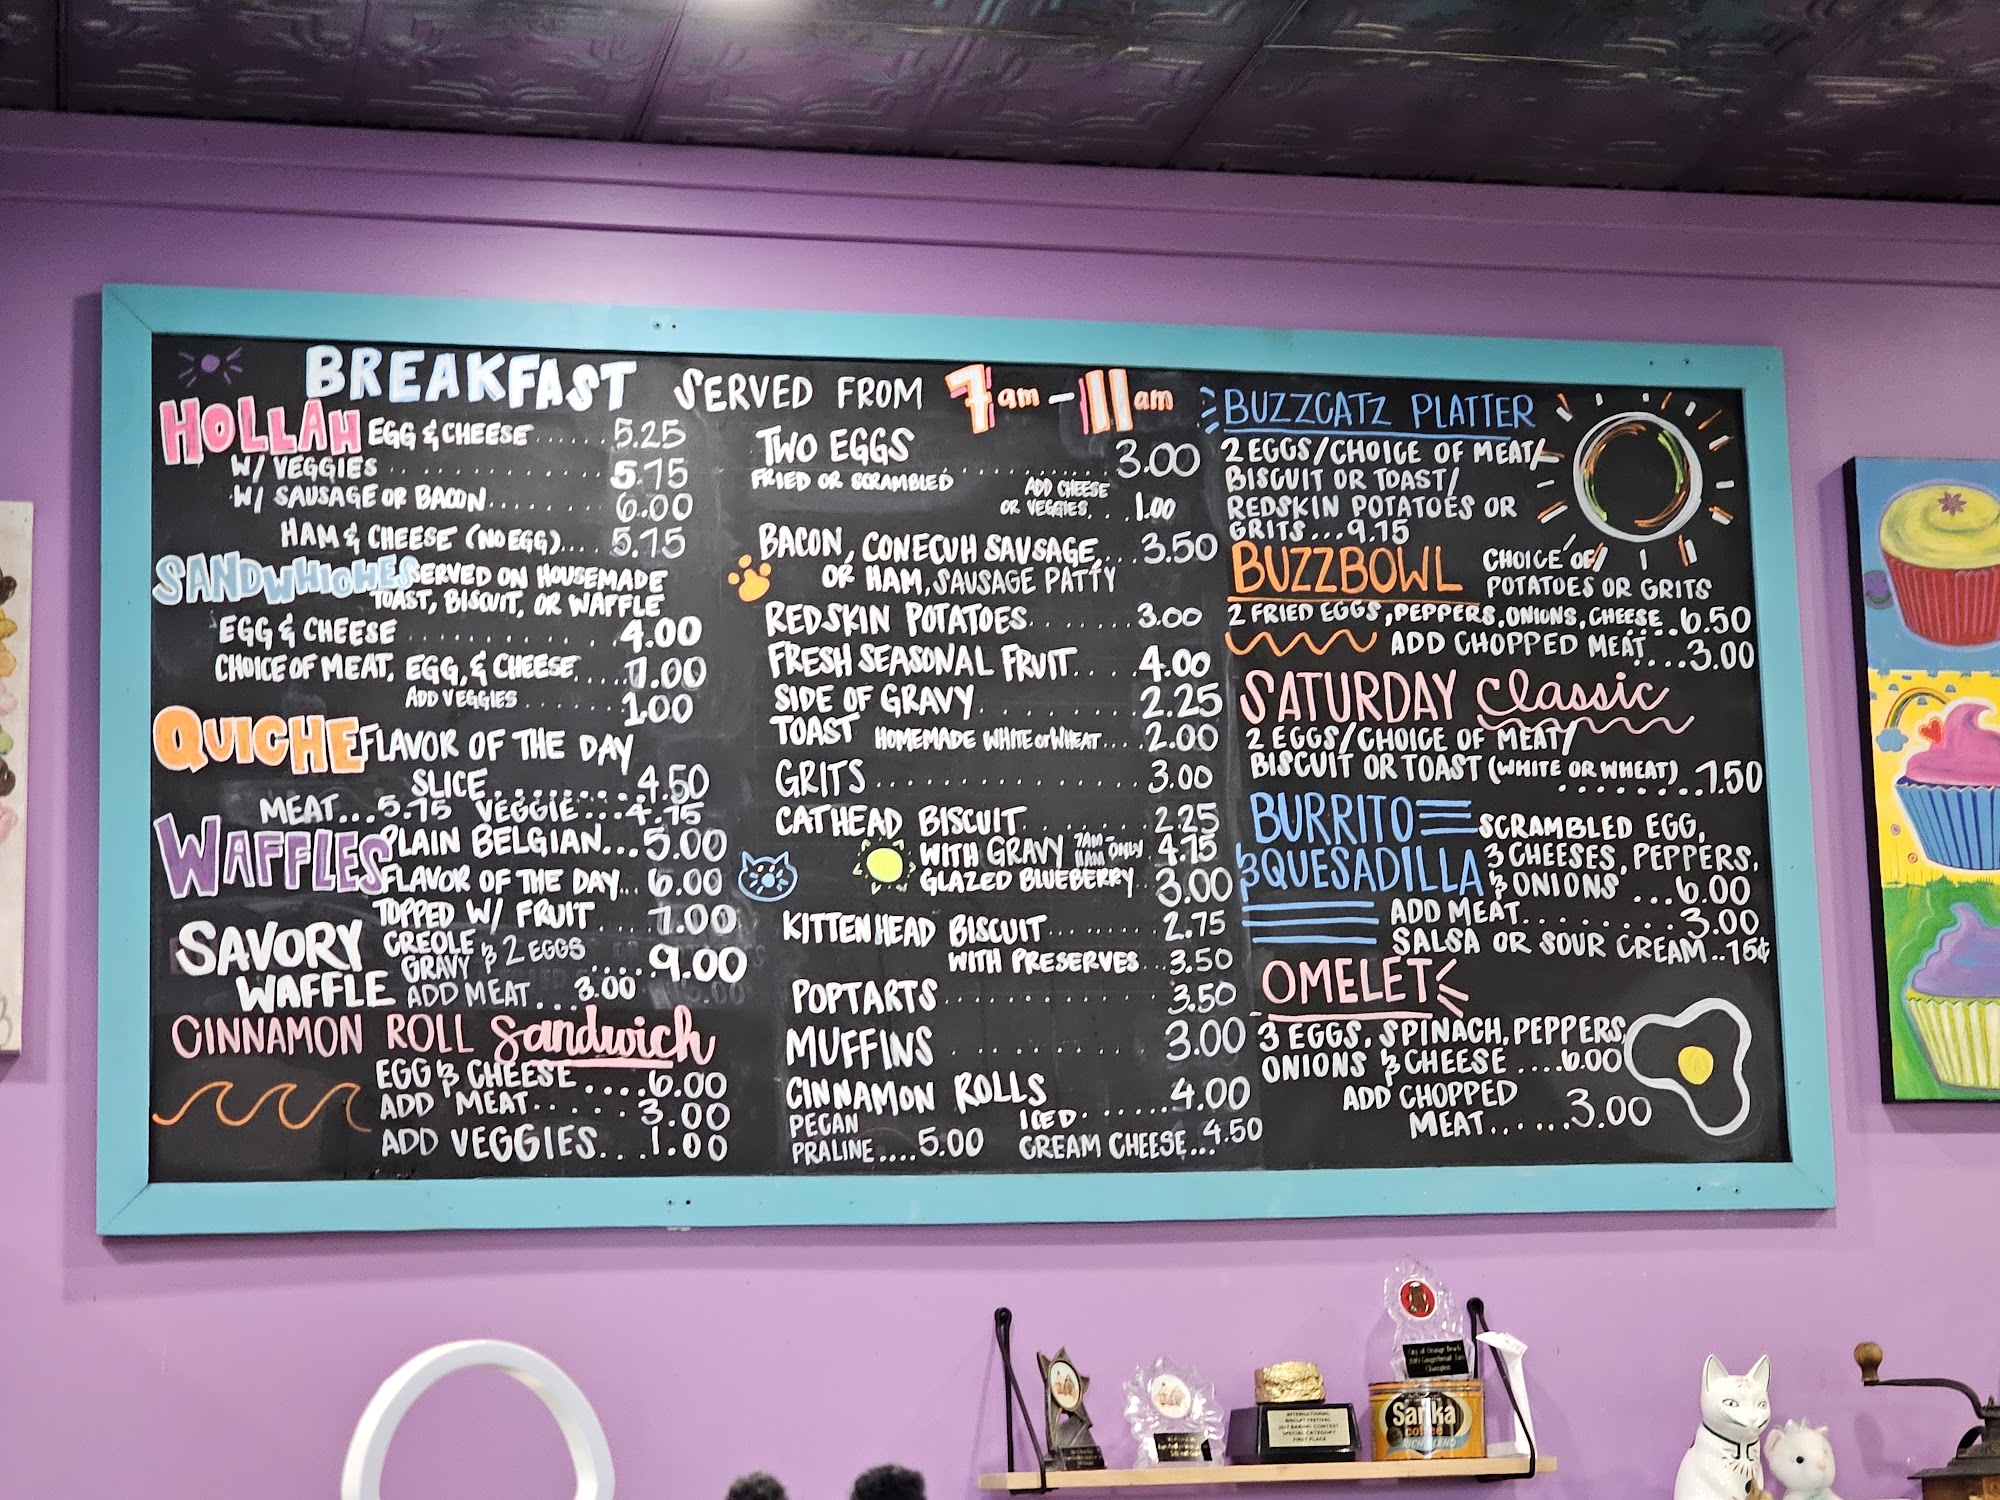 BREAKFAST SERVED FROM 7am - 11am
HOLLAH EGG & CHEESE ..... 5.25
W/ VEGGIES ............ 5.75
W/ SAUSAGE OR BACON ....... 6.00
HAM & CHEESE (NO EGG).... 5.75
SANDWHICHES SERVED ON HOUSEMADE
TOAST, BISCUIT, OR WAFFLE
EGG & CHEESE ............ 4.00
CHOICE OF MEAT, EGG, & CHEESE..... 7.00
ADD VEGGIES ....... 1.00
QUICHE FLAVOR OF THE DAY
SLICE......... 4.50
MEAT... 5.75 VEGGIE:...4.75
WAFFLES PLAIN BELGIAN... 5.00
FLAVOR OF THE DAY... 6.00
TOPPED W/ FRUIT .... 7.00
SAVORY WAFFLE CREOLE & 2 EGGS
GRAVY ..... 9.00
ADD MEAT... 3.00
CINNAMON ROLL Sandwich
EGG & CHEESE .... 6.00
ADD MEAT..... 3.00
ADD VEGGIES... 1.00
TWO EGGS ............ 3.00
FRIED OR SCRAMBLED
ADD CHEESE
OR VEGGIES. . . 1.00
BACON, CONECUH SAUSAGE... 3.50
OR HAM, SAUSAGE PATTY
REDSKIN POTATOES....... 3.00
FRESH SEASONAL FRUIT... 4.00
SIDE OF GRAVY......... 2.25
TOAST HOMEMADE WHITE or WHEAT.... 2.00
GRITS ............. 3.00
CATHEAD BISCUIT......... 2.25
WITH GRAVY 7AM 11AM ONLY 4.75
GLAZED BLUEBERRY... 3.00
KITTENHEAD BISCUIT....... 2.75
WITH PRESERVES...3.50
POPTARTS............. 3.50
MUFFINS ........... 3.00
CINNAMON ROLLS
ICED....... 4.00
PECAN
PRALINE.... 5.00
CREAM CHEESE... 4.50
BUZZCATZ PLATTER
2 EGGS/CHOICE OF MEAT/
BISCUIT OR TOAST/
REDSKIN POTATOES OR
GRITS...9.75
BUZZBOWL CHOICE OF/
POTATOES OR GRITS
2 FRIED EGGS, PEPPERS, ONIONS, CHEESE...6.50
ADD CHOPPED MEAT....3.00
SATURDAY Classic
2 EGGS/CHOICE OF MEAT/
BISCUIT OR TOAST (WHITE OR WHEAT) .........7.50
BURRITO & QUESADILLA
SCRAMBLED EGG,
3 CHEESES, PEPPERS,
& ONIONS ... 6.00
ADD MEAT......... 3.00
SALSA OR SOUR CREAM..75¢
OMELET
3 EGGS, SPINACH, PEPPERS,
ONIONS & CHEESE ....6.00
ADD CHOPPED
MEAT......3.00
City of Orange Beach
Champion
INTERNATIONAL
BISCUIT FESTIVAL
2017 BAKING CONTEST
SPECIAL CATEGORY
FIRST PLACE
Sanka
coffee
RICH BLEND